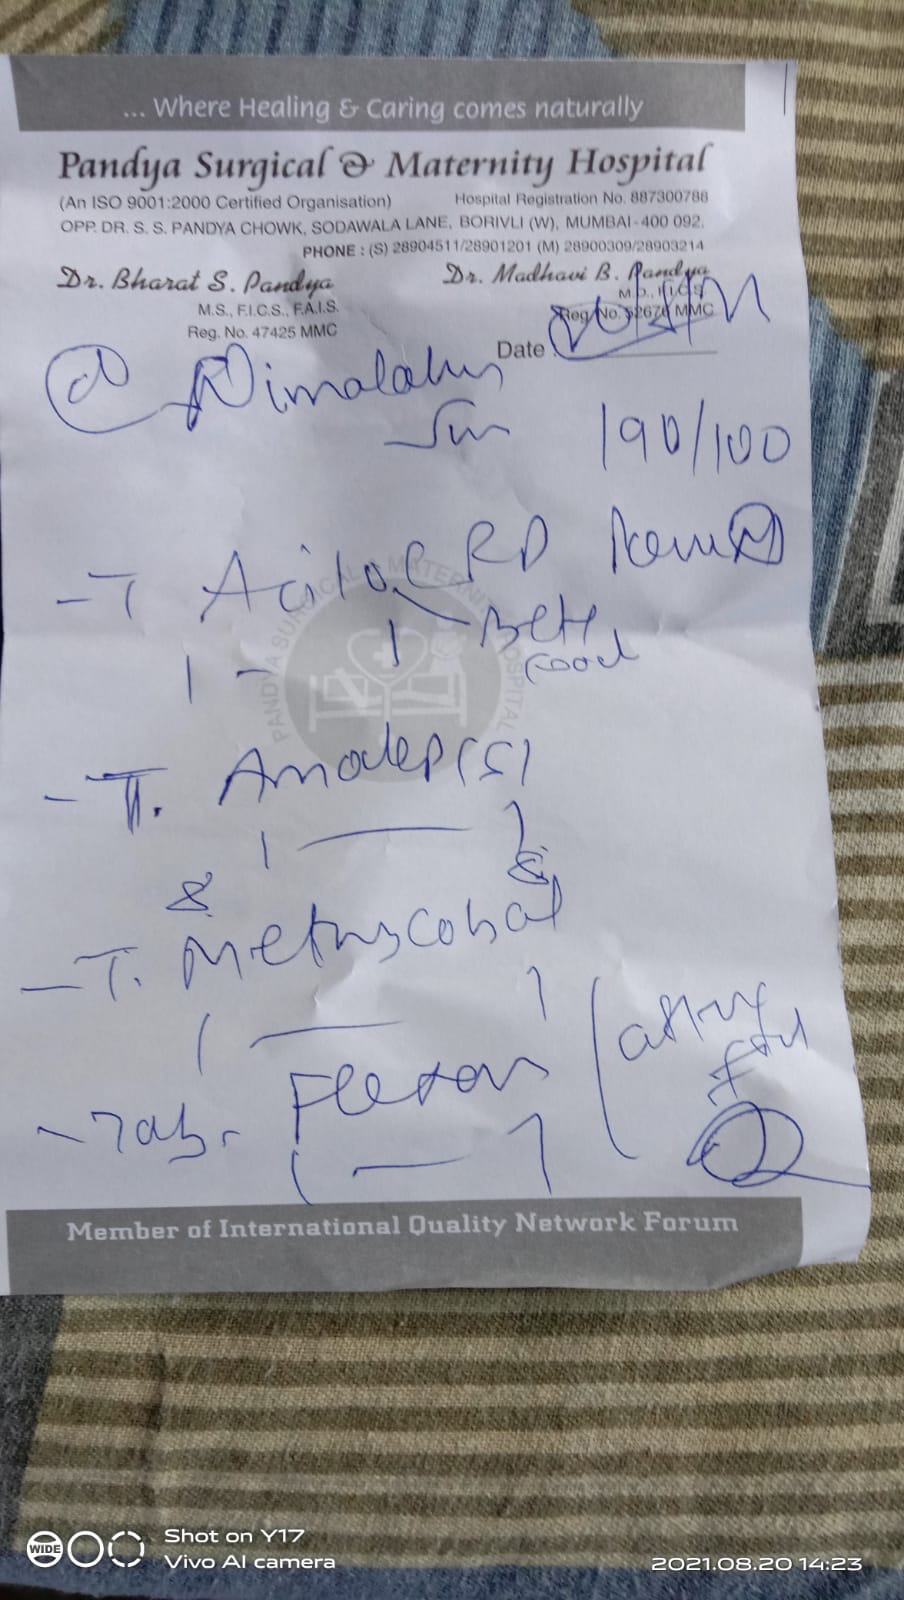 ... Where Healing & Caring comes naturally
Pandya Surgical & Maternity Hospital
(An ISO 9001:2000 Certified Organisation) Hospital Registration No. 887300788
OPP. DR. S. S. PANDYA CHOWK, SODAWALA LANE, BORIVLI (W), MUMBAI-400 092.
PHONE : (S) 28904511/28901201 (M) 28900309/28903214
Dr. Bharat S. Pandya Dr. Madhavi B. Pandya
M.S., F.I.C.S., F.A.I.S.
Reg. No. 47425 MMC Reg. No. MMC
Date
190/100
- T Aciloc RD
1 - 1
food
- T. (5)
1 — 1
&
- T. Methycobal
1 — 1
- Tab. Flexon
1 — 1
PANDYA SURGICAL & MATERNITY HOSPITAL
Member of International Quality Network Forum
WIDE
Shot on Y17
Vivo AI camera
2021.08.20 14:23